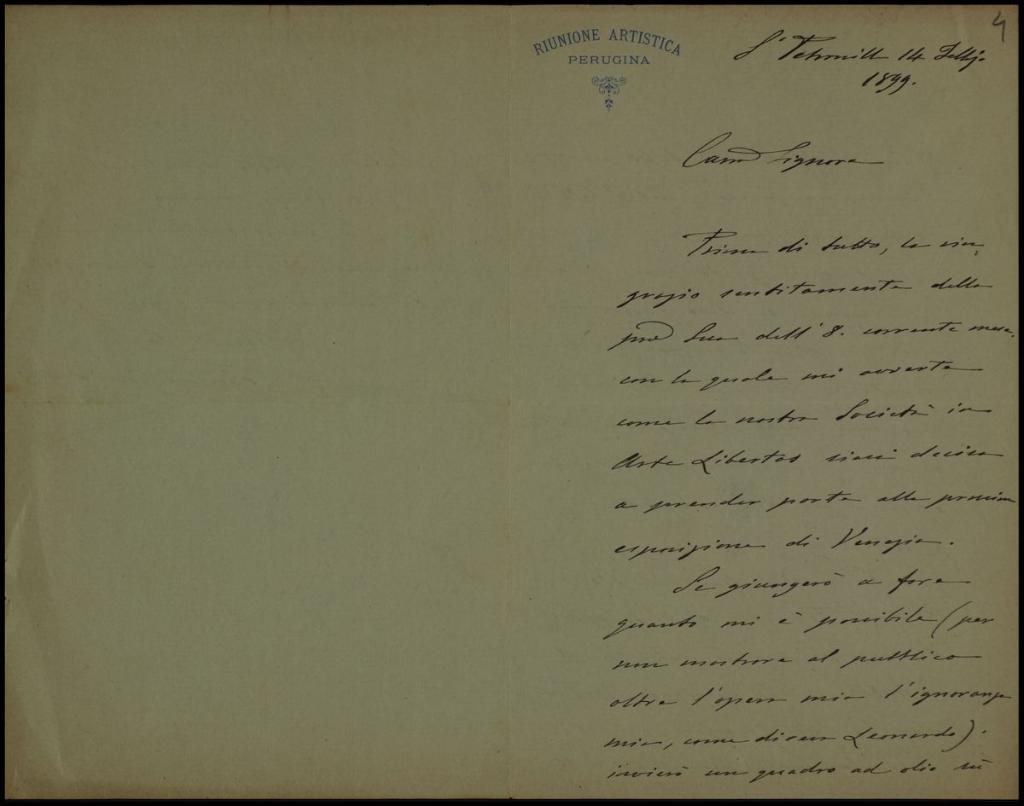 4
RIUNIONE ARTISTICA
PERUGINA
S. Petronilla 14
1899.
Cara Signora
Prima di tutto, la rin
grazio sentitamente della
Sua dell' 8. corrente mese
con la quale mi avverte
come la nostra Società in
Arte Libertas siasi decisa
a prender parte alla prossima
esposizione di Venezia.
Se giungerò a fare
quanto mi è possibile (per
non mostrare al pubblico
oltre l'opera mia l'ignoranza
mia, come diceva Leonardo).
invierò un quadro ad olio